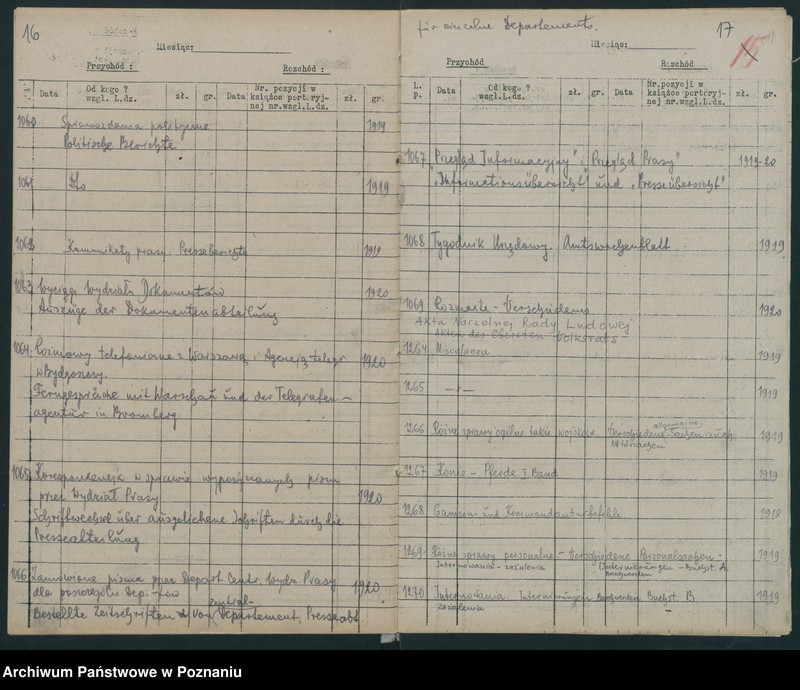 16
Miesiąc:
Przychód : Rozchód :
Data Od kogo ? wzgl. L.dz. zł. gr. Data Nr. pozycji w książce portoryj- nej nr.wzgl.L.dz. zł. gr.
1060 Sprawozdania polityczne 1919
Politische Berichte
1061 Dto 1919
1062 Komunikaty prasy Presseberichte 1919
1063 Wyciągi Wydziału Dokumentów 1920
Auszüge der Dokumentenabteilung
1064 Rozmowy telefoniczne z Warszawą i Agencją telegr. 1920
w Bydgoszczy.
Ferngespräche mit Warschau und der Telegrafen-
agentur in Bromberg
1065 Korespondencja w sprawie wypożyczanych pism
przez Wydział Prasy 1920
Schriftwechsel über ausgeliehene Schriften durch die
Presseabteilung
1066 Zamówione pisma przez Depart. Centr. Wydz. Prasy 1920
dla poszczególn. Dep.-tów
Zentral-
Bestellte Zeitschriften von Departement, Presseabt.
für einzelne Departements. 17
15
Miesiąc:
Przychód Rozchód
L. p. Data Od kogo ? wzgl.L.dz. zł. gr. Data Nr.pozycji w książce portoryj- nej nr.wzgl.L.dz. zł. gr.
1067 "Przegląd Informacyjny" i "Przegląd Prasy" 1919-20
"Informationsübersicht" und "Presseübersicht"
1068 Tygodnik Urzędowy. Amtswochenblatt 1919
1069 Rozmaite - Verschiedenes 1920
Akta Naczelnej Rady Ludowej
Akten des Obersten Volksrats
1264 Miscelanea 1919
1265 -"- 1919
allgemeine
1266 Różne sprawy ogólne także wojskowe Verschiedene Sachen auch 1919
Militärsachen
1267 Konie - Pferde I. Band 1919
1268 Garnison- und Kommandanturbefehle 1918
1269 Różne sprawy personalne - Verschiedene Personalsachen. 1919
Internowania - zażalenia (Internierungen - Buchst. A.
Beschwerden
1270 Internowania Internierungen Beschwerden Buchst. B. 1919
zażalenia
Archiwum Państwowe w Poznaniu